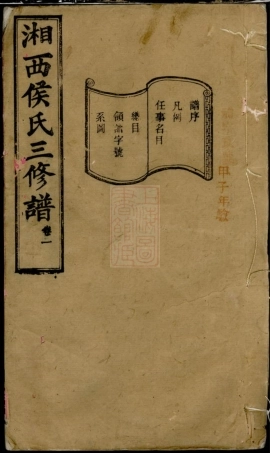 湘西侯氏三修譜 卷一
譜序
凡例
任事名目
總目
領譜字號
系圖
甲子年